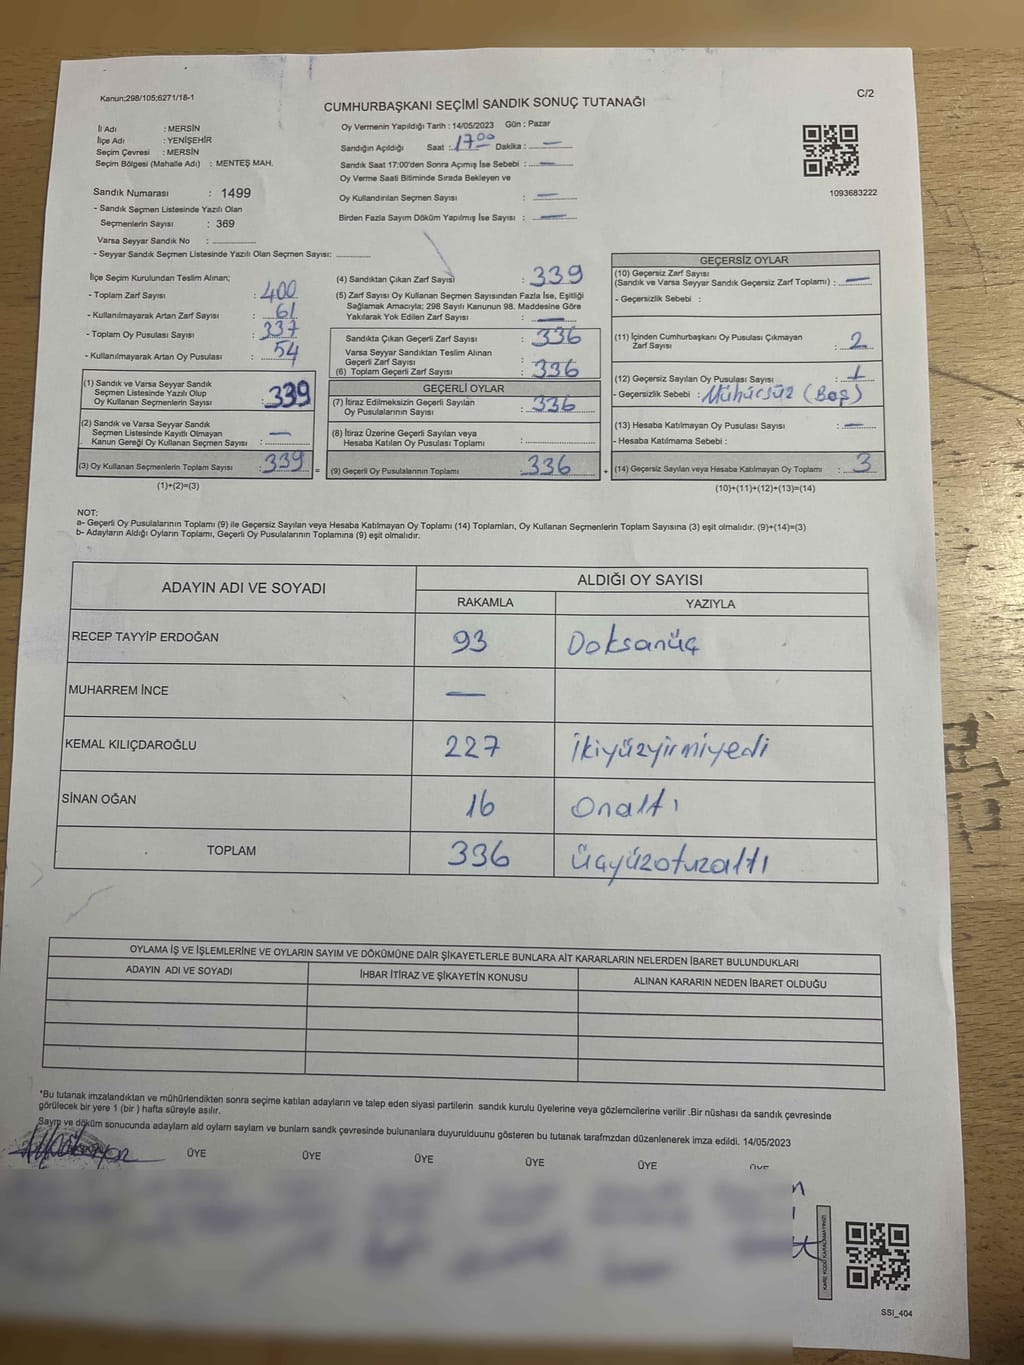 Kanun;298/105;6271/18-1
CUMHURBAŞKANI SEÇİMİ SANDIK SONUÇ TUTANAĞI
C/2
İl Adı : MERSİN
İlçe Adı : YENİŞEHİR
Seçim Çevresi : MERSİN
Seçim Bölgesi (Mahalle Adı) : MENTEŞ MAH.
Oy Vermenin Yapıldığı Tarih : 14/05/2023 Gün : Pazar
Sandığın Açıldığı Saat : 17.00 Dakika : —
Sandık Saat 17:00'den Sonra Açımış İse Sebebi : —
Oy Verme Saati Bitiminde Sırada Bekleyen ve
Oy Kullandırılan Seçmen Sayısı : —
Birden Fazla Sayım Döküm Yapılmış İse Sayısı : —
1093683222
Sandık Numarası : 1499
- Sandık Seçmen Listesinde Yazılı Olan
Seçmenlerin Sayısı : 369
Varsa Seyyar Sandık No :
- Seyyar Sandık Seçmen Listesinde Yazılı Olan Seçmen Sayısı:
İlçe Seçim Kurulundan Teslim Alınan;
- Toplam Zarf Sayısı : 400
- Kullanılmayarak Artan Zarf Sayısı : 61
- Toplam Oy Pusulası Sayısı :
- Kullanılmayarak Artan Oy Pusulası : 54
(1) Sandık ve Varsa Seyyar Sandık
Seçmen Listesinde Yazılı Olup
Oy Kullanan Seçmenlerin Sayısı : 339
(2) Sandık ve Varsa Seyyar Sandık
Seçmen Listesinde Kayıtlı Olmayan
Kanun Gereği Oy Kullanan Seçmen Sayısı : —
(3) Oy Kullanan Seçmenlerin Toplam Sayısı : 339 =
(1)+(2)=(3)
(4) Sandıktan Çıkan Zarf Sayısı : 339
(5) Zarf Sayısı Oy Kullanan Seçmen Sayısından Fazla İse, Eşitliği
Sağlamak Amacıyla; 298 Sayılı Kanunun 98. Maddesine Göre
Yakılarak Yok Edilen Zarf Sayısı : —
Sandıkta Çıkan Geçerli Zarf Sayısı : 336
Varsa Seyyar Sandıktan Teslim Alınan
Geçerli Zarf Sayısı :
(6) Toplam Geçerli Zarf Sayısı : 336
GEÇERLİ OYLAR
(7) İtiraz Edilmeksizin Geçerli Sayılan
Oy Pusulalarının Sayısı : 336
(8) İtiraz Üzerine Geçerli Sayılan veya
Hesaba Katılan Oy Pusulası Toplamı :
(9) Geçerli Oy Pusulalarının Toplamı : 336 +
GEÇERSİZ OYLAR
(10) Geçersiz Zarf Sayısı
(Sandık ve Varsa Seyyar Sandık Geçersiz Zarf Toplamı) : —
- Geçersizlik Sebebi :
(11) İçinden Cumhurbaşkanı Oy Pusulası Çıkmayan
Zarf Sayısı : 2
(12) Geçersiz Sayılan Oy Pusulası Sayısı : 1
- Geçersizlik Sebebi : Mühürsüz (Boş)
(13) Hesaba Katılmayan Oy Pusulası Sayısı : —
- Hesaba Katılmama Sebebi :
(14) Geçersiz Sayılan veya Hesaba Katılmayan Oy Toplamı : 3
(10)+(11)+(12)+(13)=(14)
NOT:
a- Geçerli Oy Pusulalarının Toplamı (9) ile Geçersiz Sayılan veya Hesaba Katılmayan Oy Toplamı (14) Toplamları, Oy Kullanan Seçmenlerin Toplam Sayısına (3) eşit olmalıdır. (9)+(14)=(3)
b- Adayların Aldığı Oyların Toplamı, Geçerli Oy Pusulalarının Toplamına (9) eşit olmalıdır.
ADAYIN ADI VE SOYADI
ALDIĞI OY SAYISI
RAKAMLA YAZIYLA
RECEP TAYYİP ERDOĞAN 93 Doksanüç
MUHARREM İNCE —
KEMAL KILIÇDAROĞLU 227 İkiyüzyirmiyedi
SİNAN OĞAN 16 Onaltı
TOPLAM 336 üçyüzotuzaltı
OYLAMA İŞ VE İŞLEMLERİNE VE OYLARIN SAYIM VE DÖKÜMÜNE DAİR ŞİKAYETLERLE BUNLARA AİT KARARLARIN NELERDEN İBARET BULUNDUKLARI
ADAYIN ADI VE SOYADI İHBAR İTİRAZ VE ŞİKAYETİN KONUSU ALINAN KARARIN NEDEN İBARET OLDUĞU
*Bu tutanak imzalandıktan ve mühürlendikten sonra seçime katılan adayların ve talep eden siyasi partilerin sandık kurulu üyelerine veya gözlemcilerine verilir .Bir nüshası da sandık çevresinde
görülecek bir yere 1 (bir ) hafta süreyle asılır.
Sayım ve döküm sonucunda adaylarn ald oylarn saylarn ve bunlarn sandk çevresinde bulunanlara duyurulduunu gösteren bu tutanak tarafmzdan düzenlenerek imza edildi. 14/05/2023
ÜYE ÜYE ÜYE ÜYE ÜYE ÜYE
SSI_404